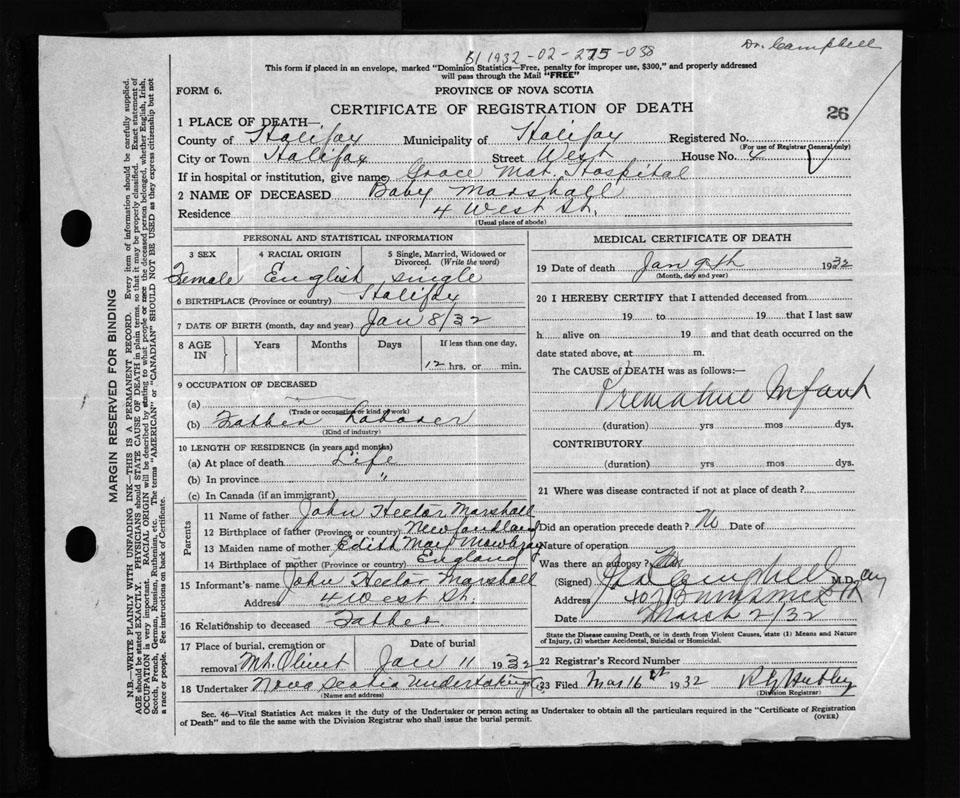 Dr. Campbell
B/1932-02-275-038
This form if placed in an envelope, marked "Dominion Statistics—Free, penalty for improper use, $300," and properly addressed
will pass through the Mail "FREE"
FORM 6. PROVINCE OF NOVA SCOTIA
CERTIFICATE OF REGISTRATION OF DEATH 26
1 PLACE OF DEATH—
County of Halifax Municipality of Halifax Registered No.
(For use of Registrar General only)
City or Town Halifax Street West House No. 4
If in hospital or institution, give name Grace Mat. Hospital
2 NAME OF DECEASED Baby Marshall
Residence 4 West St.
(Usual place of abode)
PERSONAL AND STATISTICAL INFORMATION
3 SEX 4 RACIAL ORIGIN 5 Single, Married, Widowed or
Divorced. (Write the word)
Female English single
6 BIRTHPLACE (Province or country) Halifax
7 DATE OF BIRTH (month, day and year) Jan 8/32
8 AGE IN Years Months Days If less than one day,
12 hrs. or min.
9 OCCUPATION OF DECEASED
(a)
(Trade or occupation or kind of work)
(b) Father Laborer
(Kind of industry)
10 LENGTH OF RESIDENCE (in years and months)
(a) At place of death Life
(b) In province "
(c) In Canada (if an immigrant)
Parents
11 Name of father John Hector Marshall
12 Birthplace of father (Province or country) Newfoundland
13 Maiden name of mother Edith May Mowbray
14 Birthplace of mother (Province or country) England
15 Informant's name John Hector Marshall
Address 4 West St.
16 Relationship to deceased Father
17 Place of burial, cremation or Date of burial
removal Mt. Olivet Jan 11 1932
18 Undertaker Nova Scotia Undertaking Co
(Name and address)
MEDICAL CERTIFICATE OF DEATH
19 Date of death Jan 9th 1932
(Month, day and year)
20 I HEREBY CERTIFY that I attended deceased from
19 to 19 that I last saw
h alive on 19 and that death occurred on the
date stated above, at m.
The CAUSE of DEATH was as follows:—
Premature Infant
(duration) yrs mos dys.
CONTRIBUTORY
(duration) yrs mos dys.
21 Where was disease contracted if not at place of death?
Did an operation precede death? No Date of
Nature of operation
Was there an autopsy?
(Signed) Campbell M.D.
Address 407 Brunswick St
Date March 2/32
State the Disease causing Death, or in death from Violent Causes, state (1) Means and Nature
of Injury, (2) whether Accidental, Suicidal or Homicidal.
22 Registrar's Record Number
23 Filed Mar 16th 1932 Hubley
(Division Registrar)
Sec. 46—Vital Statistics Act makes it the duty of the Undertaker or person acting as Undertaker to obtain all the particulars required in the "Certificate of Registration
of Death" and to file the same with the Division Registrar who shall issue the burial permit. (OVER)
MARGIN RESERVED FOR BINDING
N.B.—WRITE PLAINLY WITH UNFADING INK—THIS IS A PERMANENT RECORD. Every item of information should be carefully supplied.
AGE should be stated EXACTLY. PHYSICIANS should STATE CAUSE OF DEATH in plain terms, so that it may be properly classified. Exact statement of
OCCUPATION is very important. RACIAL ORIGIN will be described by stating to what people or race the deceased person belonged, whether English, Irish,
Scotch, French, German, Russian, Ruthenian, etc. The terms "AMERICAN" or "CANADIAN" SHOULD NOT BE USED as they express citizenship but not
a race or people. See instructions on back of Certificate.